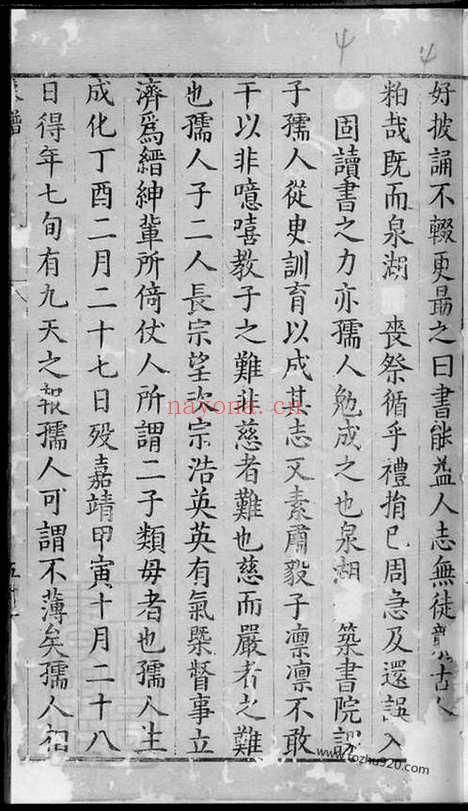 好披誦不輟更最之曰書能益人志無徒 古人
粕哉既而泉湖 喪祭循乎禮捐已周急及還誤入
固讀書之力亦孺人勉成之也泉湖 築書院
子孺人從臾訓育以成其志又素肅毅子凛凛不敢
干以非噫嘻教子之難非慈者難也慈而嚴者之難
也孺人子二人長宗望次宗浩英英有氣槩督事立
濟爲縉紳輩所倚仗人所謂二子類毋者也孺人生
成化丁酉二月二十七日殁嘉靖甲寅十月二十八
日得年七旬有九天之報孺人可謂不薄矣孺人
譜
nayona.cn
www.fozhu920.com